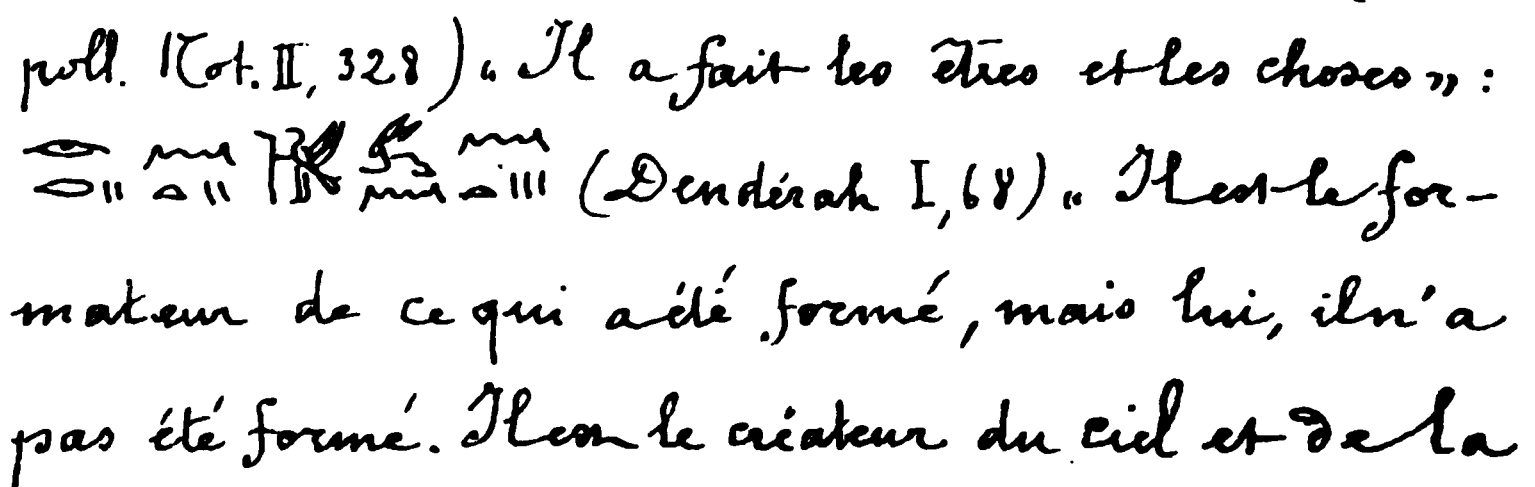 poll. Not. II, 328) „ Il a fait les êtres et les choses „ :
(Dendérah I, 68) „ Il est le for-
mateur de ce qui a été formé, mais lui, il n'a
pas été formé. Il est le créateur du ciel et de la